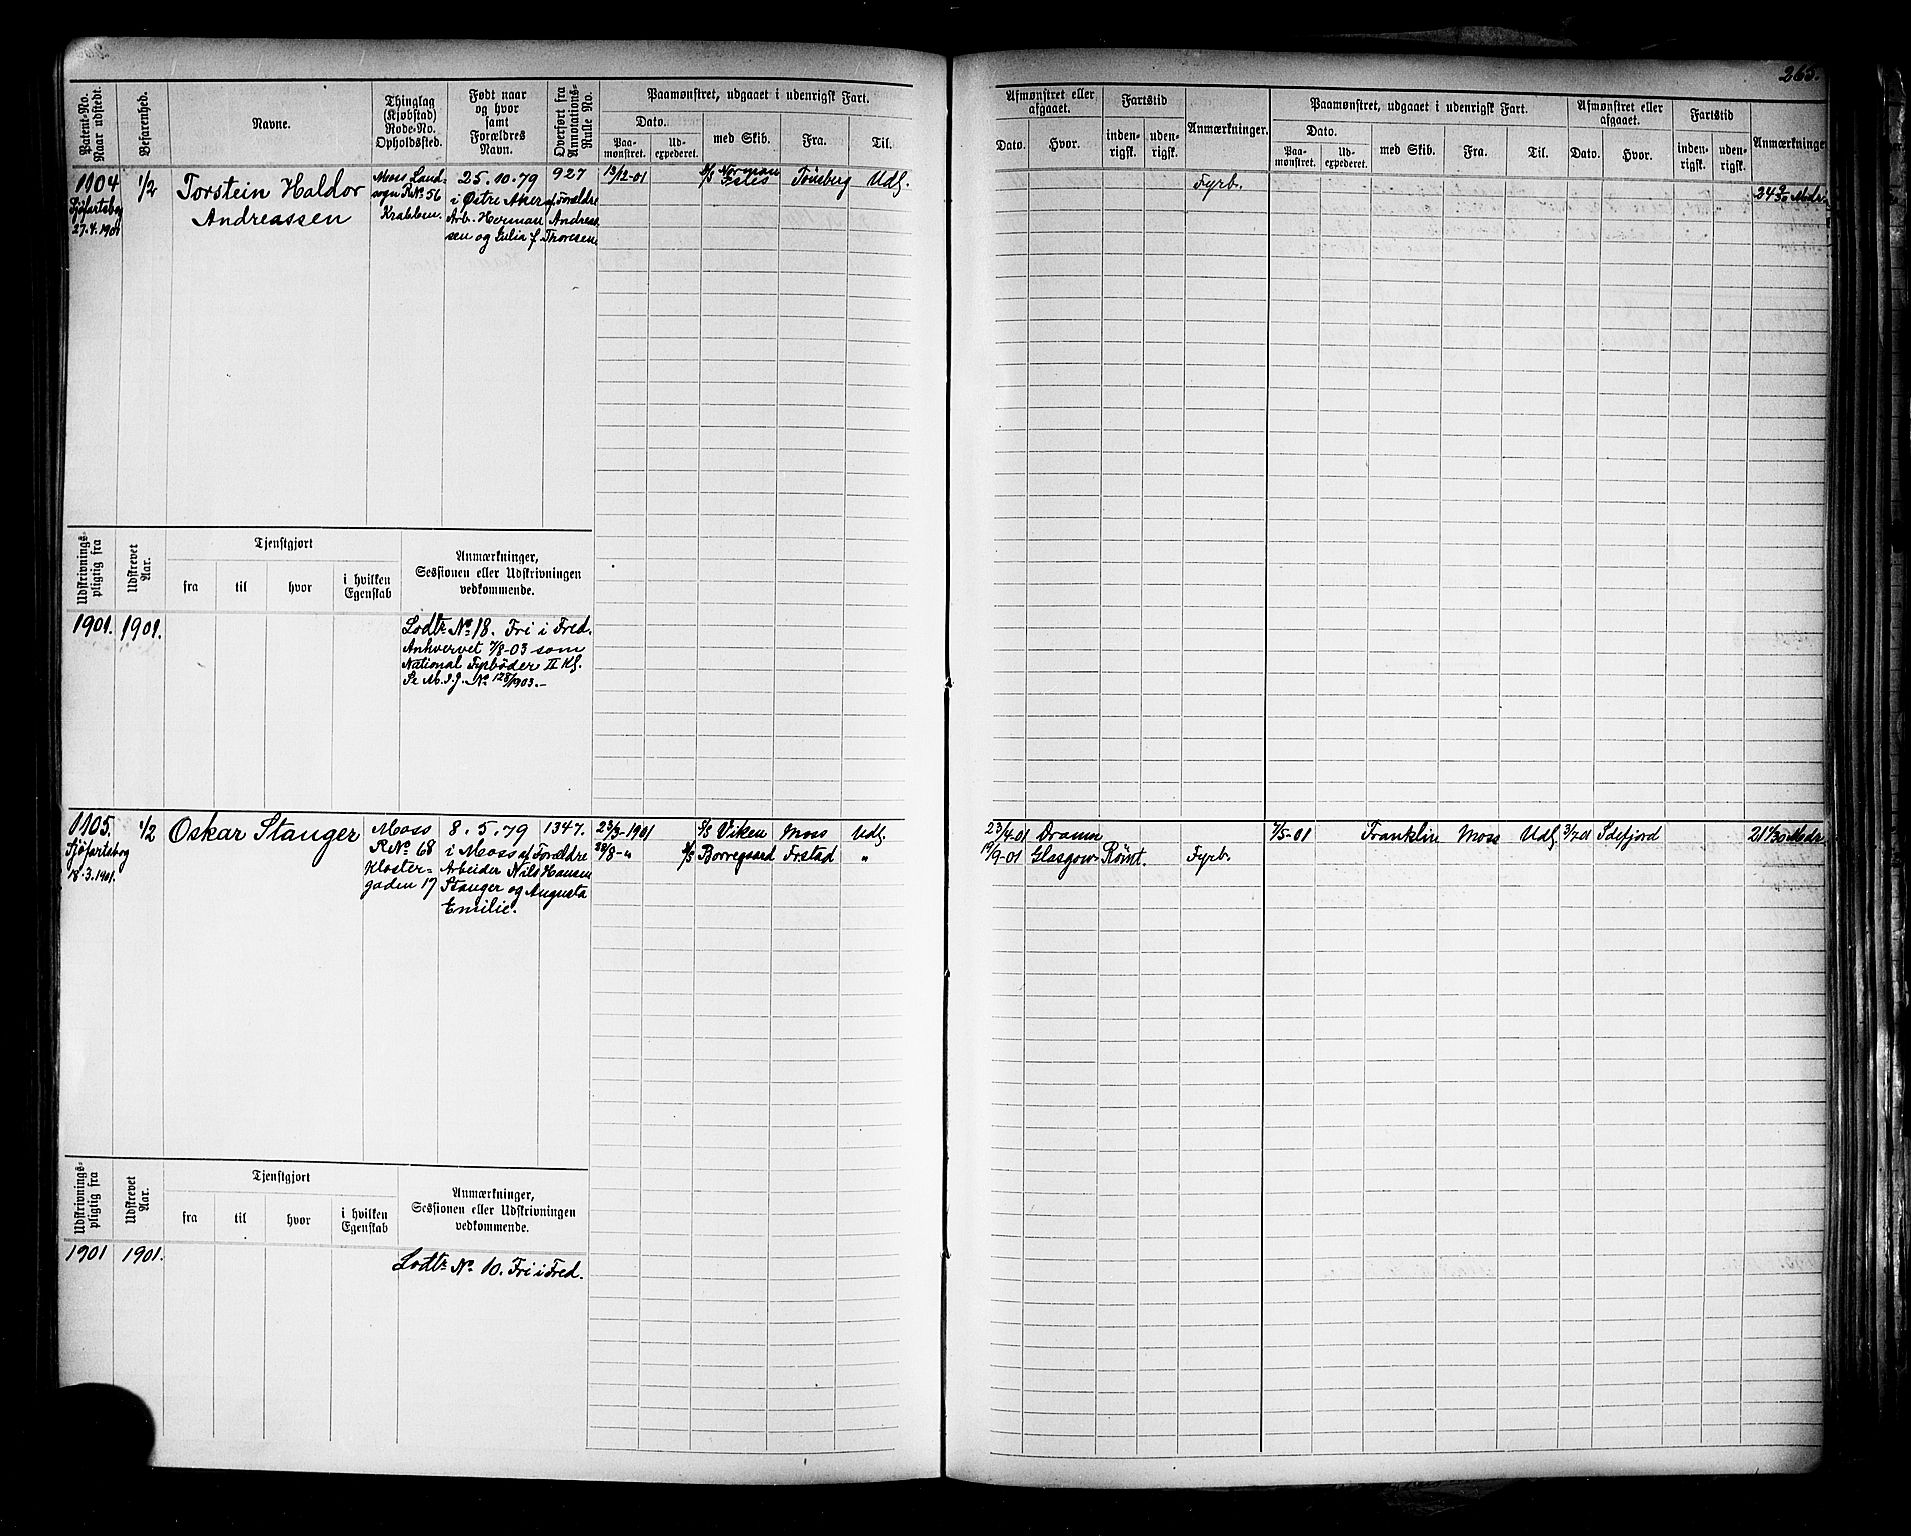 265.
Patent-No. Naar udstedt.
Befarenhed.
Navne.
Thinglag (Kjøbstad) Rode-No. Opholdssted.
Født naar og hvor samt Forældres Navn.
Overført fra Annotations-Rulle No.
Paamønstret, udgaaet i udenrigsk Fart.
Dato.
Paa-mønstret.
Ud-expederet.
med Skib.
Fra.
Til.
Afmønstret eller afgaaet.
Dato.
Hvor.
Fartstid
inden-rigsk.
uden-rigsk.
Anmærkninger.
Paamønstret, udgaaet i udenrigsk Fart.
Dato.
Paa-mønstret.
Ud-expederet.
med Skib.
Fra.
Til.
Afmønstret eller afgaaet.
Dato.
Hvor.
Fartstid
inden-rigsk.
uden-rigsk.
Anmærkninger
1104
Sjøfartsbog
27.4.1901
1/2
Torstein Haldor
Andreassen
Moss Land-
sogn R.No 56
Krabben.
25.10.79
i Østre Aker af Forældre
Arb. Herman Andreas-
sen og Julia f. Thoresen
927
13/12-01
S/S Norman Isles
Tönsberg
Udl.
Fyrb.
Mdr.
Udskrivnings-pligtig fra
Udskrevet Aar.
Tjenstgjort
fra
til
hvor
i hvilken Egenskab
Anmærkninger, Sessionen eller Udskrivningen vedkommende.
1901.
1901.
Lodtr. No 18. Fri i Fred.
Anhvervet 7/8-03 som
National Fyrbøder II Kl.
Se M.I.J. No 128/1903.-
1105.
Sjøfartsbog
18.3.1901.
1/2
Oskar Stanger
Moss
R No 68
Kloster-
gaden 17
8.5.79
i Moss af Forældre
Arbeider Nils Hansen
Stanger og Augusta
Emilie.
1347.
23/3-1901
S/S Viken
Moss
Udl.
23/4-01
Dramm
7/5-01
Franklin
Moss
Udl.
3/7 01
Sdefjord
Mdr.
28/8-"
S/S Borregaard
Frstad
"
19/9-01
Glasgow
Römt.
Fyrb.
Udskrivnings-pligtig fra
Udskrevet Aar.
Tjenstgjort
fra
til
hvor
i hvilken Egenskab
Anmærkninger, Sessionen eller Udskrivningen vedkommende.
1901
1901.
Lodtr. No 10. Fri i Fred.